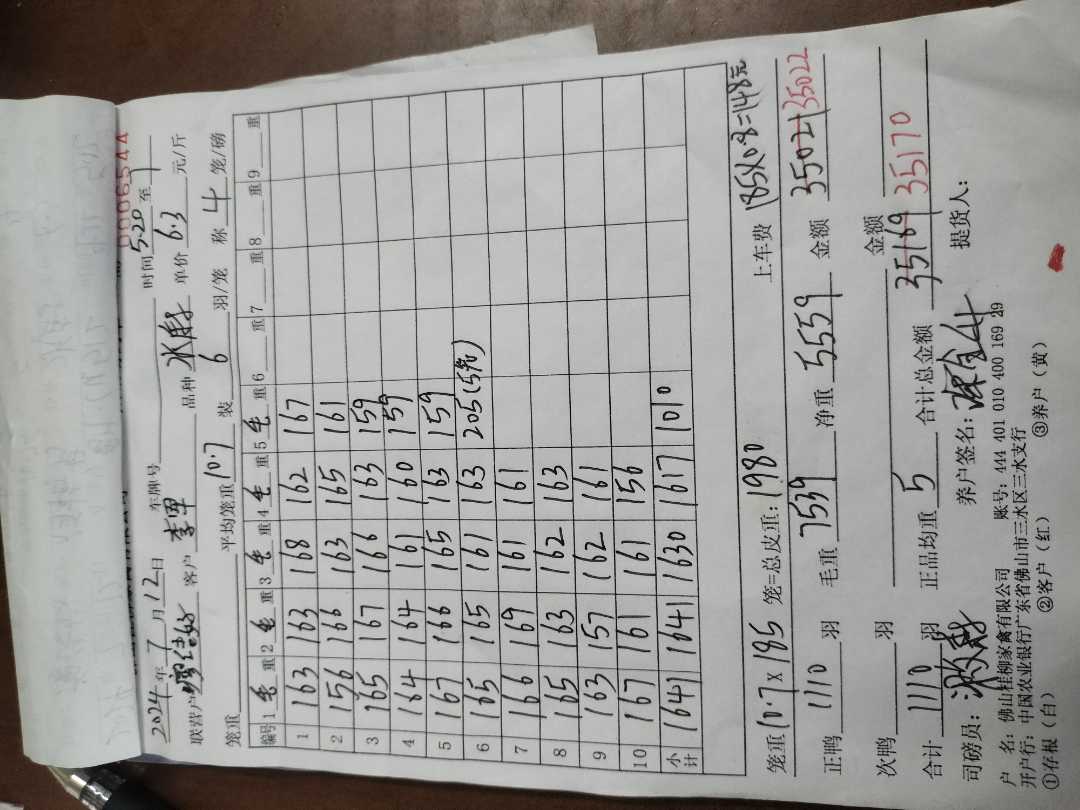 0006544
2024年7月12日 车牌号 时间5.20至
联营户 客户李军 品种 单价6.3元/斤
笼重 平均笼重10.7装6羽/笼 称4笼/磅
编号 1毛重 2毛重 3毛重 4毛重 5毛重 6 重 7 重 8 重 9 重
1 163 163 168 162 167
2 156 166 163 165 161
3 165 167 166 163 159
4 164 164 161 160 159
5 167 166 165 163 159
6 165 165 161 163 205(5笼)
7 166 169 161 161
8 165 163 162 163
9 163 157 162 161
10 167 161 161 156
小计 1641 1641 1630 1617 1010
笼重10.7×185笼=总皮重:1980 上车费185×0.8=148元
正鸭1110羽 毛重7539净重5559金额35021 35022
次鸭 羽 金额
合计1110羽 正品均重5合计总金额35169 35170
司磅员: 养户签名: 提货人:
户 名:佛山桂柳家禽有限公司 账号:444 401 010 400 169 29
开户行:中国农业银行广东省佛山市三水区三水支行
①存根(白) ②客户(红) ③养户(黄)